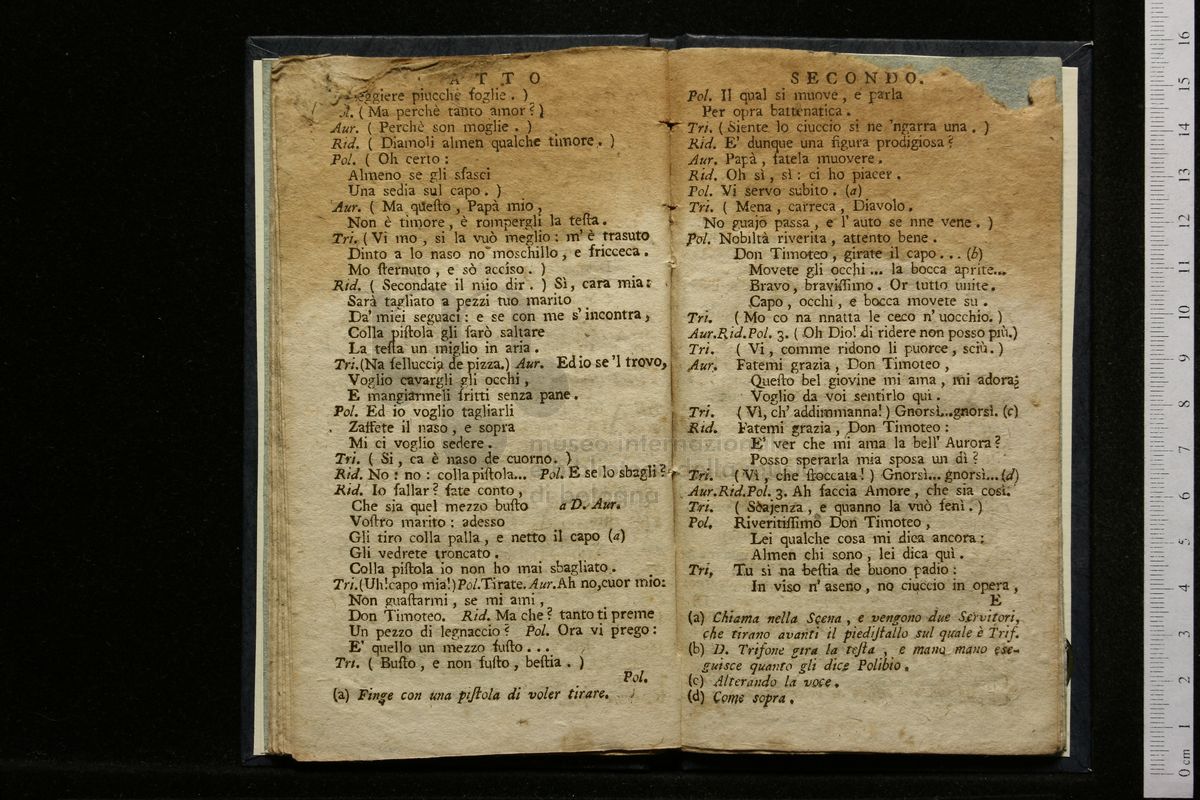 ATTO
leggiere piucchè foglie. )
( Ma perchè tanto amor? )
Aur. ( Perchè son moglie. )
Rid. ( Diamoli almen qualche timore. )
Pol. ( Oh certo:
Almeno se gli sfasci
Una sedia sul capo. )
Aur. ( Ma queſto, Papà mio,
Non è timore, è rompergli la teſta.
Tri. ( Vi mo, si la vuò meglio: m'è trasuto
Dinto a lo naso no moschillo, e fricceca.
Mo ſternuto, e sò acciso. )
Rid. ( Secondate il mio dir. ) Sì, cara mia:
Sarà tagliato a pezzi tuo marito
Da' miei seguaci: e se con me s'incontra,
Colla piſtola gli farò saltare
La teſta un miglio in aria.
Tri. (Na felluccia de pizza.) Aur. Ed io se 'l trovo,
Voglio cavargli gli occhi,
E mangiarmeli fritti senza pane.
Pol. Ed io voglio tagliarli
Zaffete il naso, e sopra
Mi ci voglio sedere.
Tri. ( Si, ca è naso de cuorno. )
Rid. No: no: colla piſtola... Pol. E se lo sbagli?
Rid. Io fallar? fate conto,
Che sia quel mezzo buſto a D. Aur.
Voſtro marito: adesso
Gli tiro colla palla, e netto il capo (a)
Gli vedrete troncato.
Colla piſtola io non ho mai sbagliato.
Tri. (Uh! capo mia!) Pol. Tirate. Aur. Ah no, cuor mio:
Non guaſtarmi, se mi ami,
Don Timoteo. Rid. Ma che? tanto ti preme
Un pezzo di legnaccio? Pol. Ora vi prego:
E' quello un mezzo fuſto...
Tri. ( Buſto, e non fuſto, beſtia. )
Pol.
(a) Finge con una piſtola di voler tirare.
SECONDO.
Pol. Il qual si muove, e parla
Per opra battenatica.
Tri. (Siente lo ciuccio si ne 'ngarra una. )
Rid. E' dunque una figura prodigiosa?
Aur. Papà, fatela muovere.
Rid. Oh sì, sì: ci ho piacer.
Pol. Vi servo subito. (a)
Tri. ( Mena, carreca, Diavolo.
No guajo passa, e l'auto se nne vene. )
Pol. Nobiltà riverita, attento bene.
Don Timoteo, girate il capo... (b)
Movete gli occhi... la bocca aprite...
Bravo, braviſſimo. Or tutto unite.
Capo, occhi, e bocca movete su.
Tri. (Mo co na nnatta le ceco n'uocchio. )
Aur. Rid. Pol. 3. ( Oh Dio! di ridere non posso più.)
Tri. ( Vi, comme ridono li puorce, sciù. )
Aur. Fatemi grazia, Don Timoteo,
Queſto bel giovine mi ama, mi adora;
Voglio da voi sentirlo quì.
Tri. ( Vì, ch' addimmanna! ) Gnorsì...gnorsì. (c)
Rid. Fatemi grazia, Don Timoteo:
E' ver che mi ama la bell' Aurora?
Posso sperarla mia sposa un dì?
Tri. ( Vì, che ſtoccata! ) Gnorsì... gnorsì... (d)
Aur. Rid. Pol. 3. Ah faccia Amore, che sia così.
Tri. ( Scajenza, e quanno la vuò fenì. )
Pol. Riveritiſſimo Don Timoteo,
Lei qualche cosa mi dica ancora:
Almen chi sono, lei dica quì.
Tri, Tu si na beſtia de buono padio:
In viso n'aseno, no ciuccio in opera,
E
(a) Chiama nella Scena, e vengono due Servitori,
che tirano avanti il piediſtallo sul quale è Trif.
(b) D. Trifone gira la teſta, e mano mano ese-
guisce quanto gli dice Polibio.
(c) Alterando la voce.
(d) Come sopra.